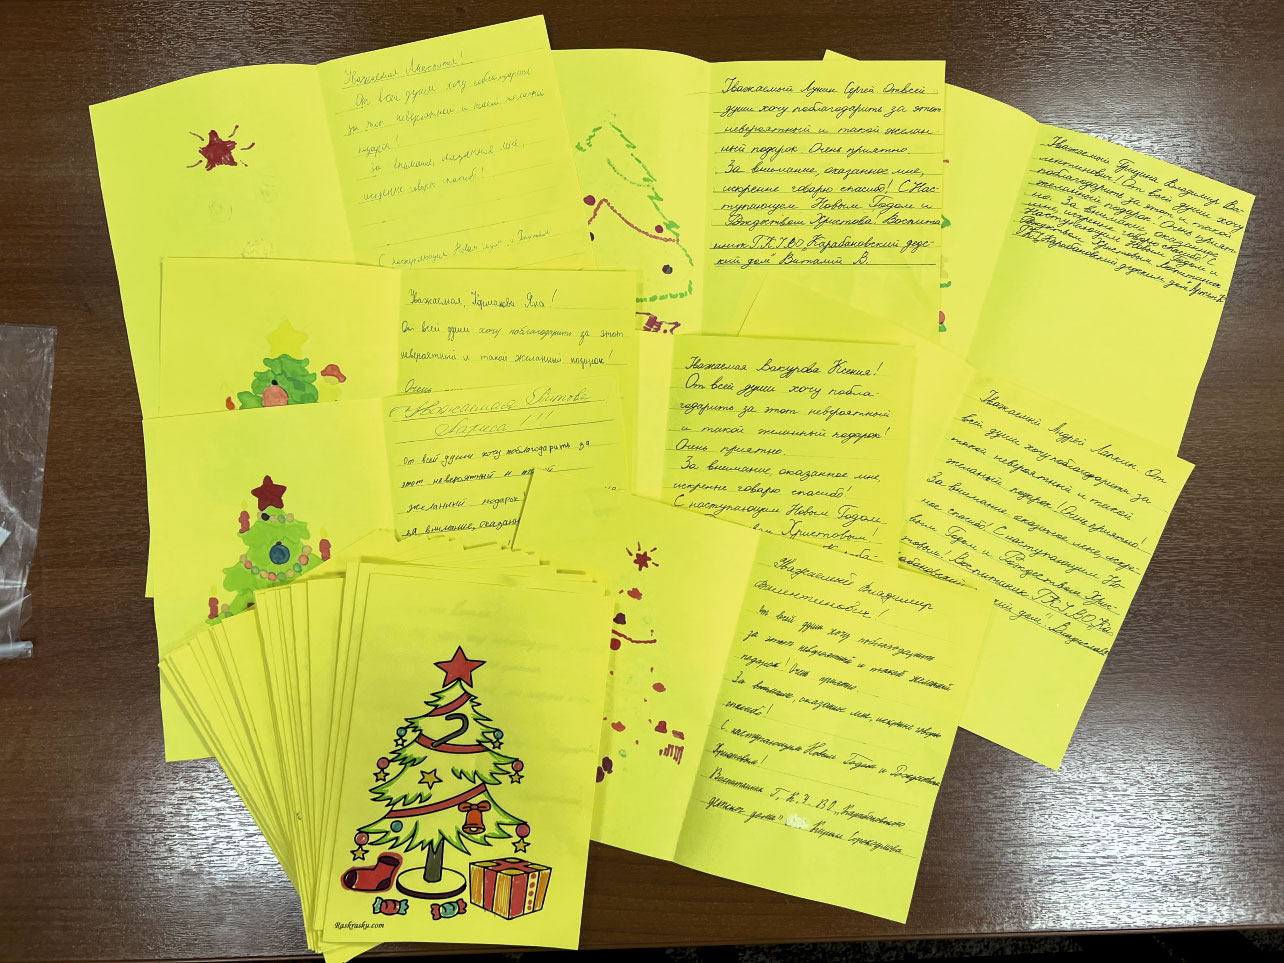 Уважаемая
От всей души хочу поблагодарить
за этот невероятный и такой желанный
подарок!
За внимание, оказанное мне,
искренне говорю спасибо!
С наступающим Новым годом и
Уважаемый Лунин Сергей. От всей
души хочу поблагодарить за этот
невероятный и такой желан-
ный подарок. Очень приятно.
За внимание, оказанное мне,
искренне говорю спасибо! С Нас-
тупающем Новым Годом и
Рождеством Христова! Воспита
нник Г.К.У.В.О „Карабановский детс-
кий дом" Виталий В.
Уважаемый Грицина Владимир Ва-
лентинович! От всей души хочу
поблагодарить за этот и такой
желанный подарок. Очень прият-
но. За внимание, оказанное
мне, искренне говорю спасибо! С
Наступающем Новым Годом и
Рождеством Христовым Воспитанник
Карабановский детский дом
Уважаемая, Яна!
От всей души хочу поблагодарить за этот
невероятный и такой желанный подарок!
Очень
Уважаемая
Лариса!!!
От всей души хочу поблагодарить за
этот невероятный и такой
желанный подарок!
за внимание, оказанн
Уважаемая Вакурова Ксения!
От всей души хочу побла-
годарить за этот невероятный
и такой желанный подарок!
Очень приятно.
За внимание оказанное мне,
искренне говорю спасибо!
С наступающим Новым Годом
Христовым!
Уважаемый Андрей Лапкин. От
всей души хочу поблагодарить за
такой невероятный и такой
желанный подарок! Очень приятно!
За внимание оказанное мне, искре-
нное спасибо! С наступающим Но-
вым Годом и Рождеством Хрис-
товым! Воспитанник Г.К.У.В.О „Ка-
рабановский
кий дом"
Уважаемый Владимир
Валентинович!
От всей души хочу поблагодарить
за этот невероятный и такой желанный
подарок! Очень приятно.
За внимание, оказанное мне, искренне говорю
спасибо!
С наступающим Новым Годом и Рождеством
Христовым!
Воспитанник Г.К.У ВО „Карабановского
детского дома"
Raskrasku.com